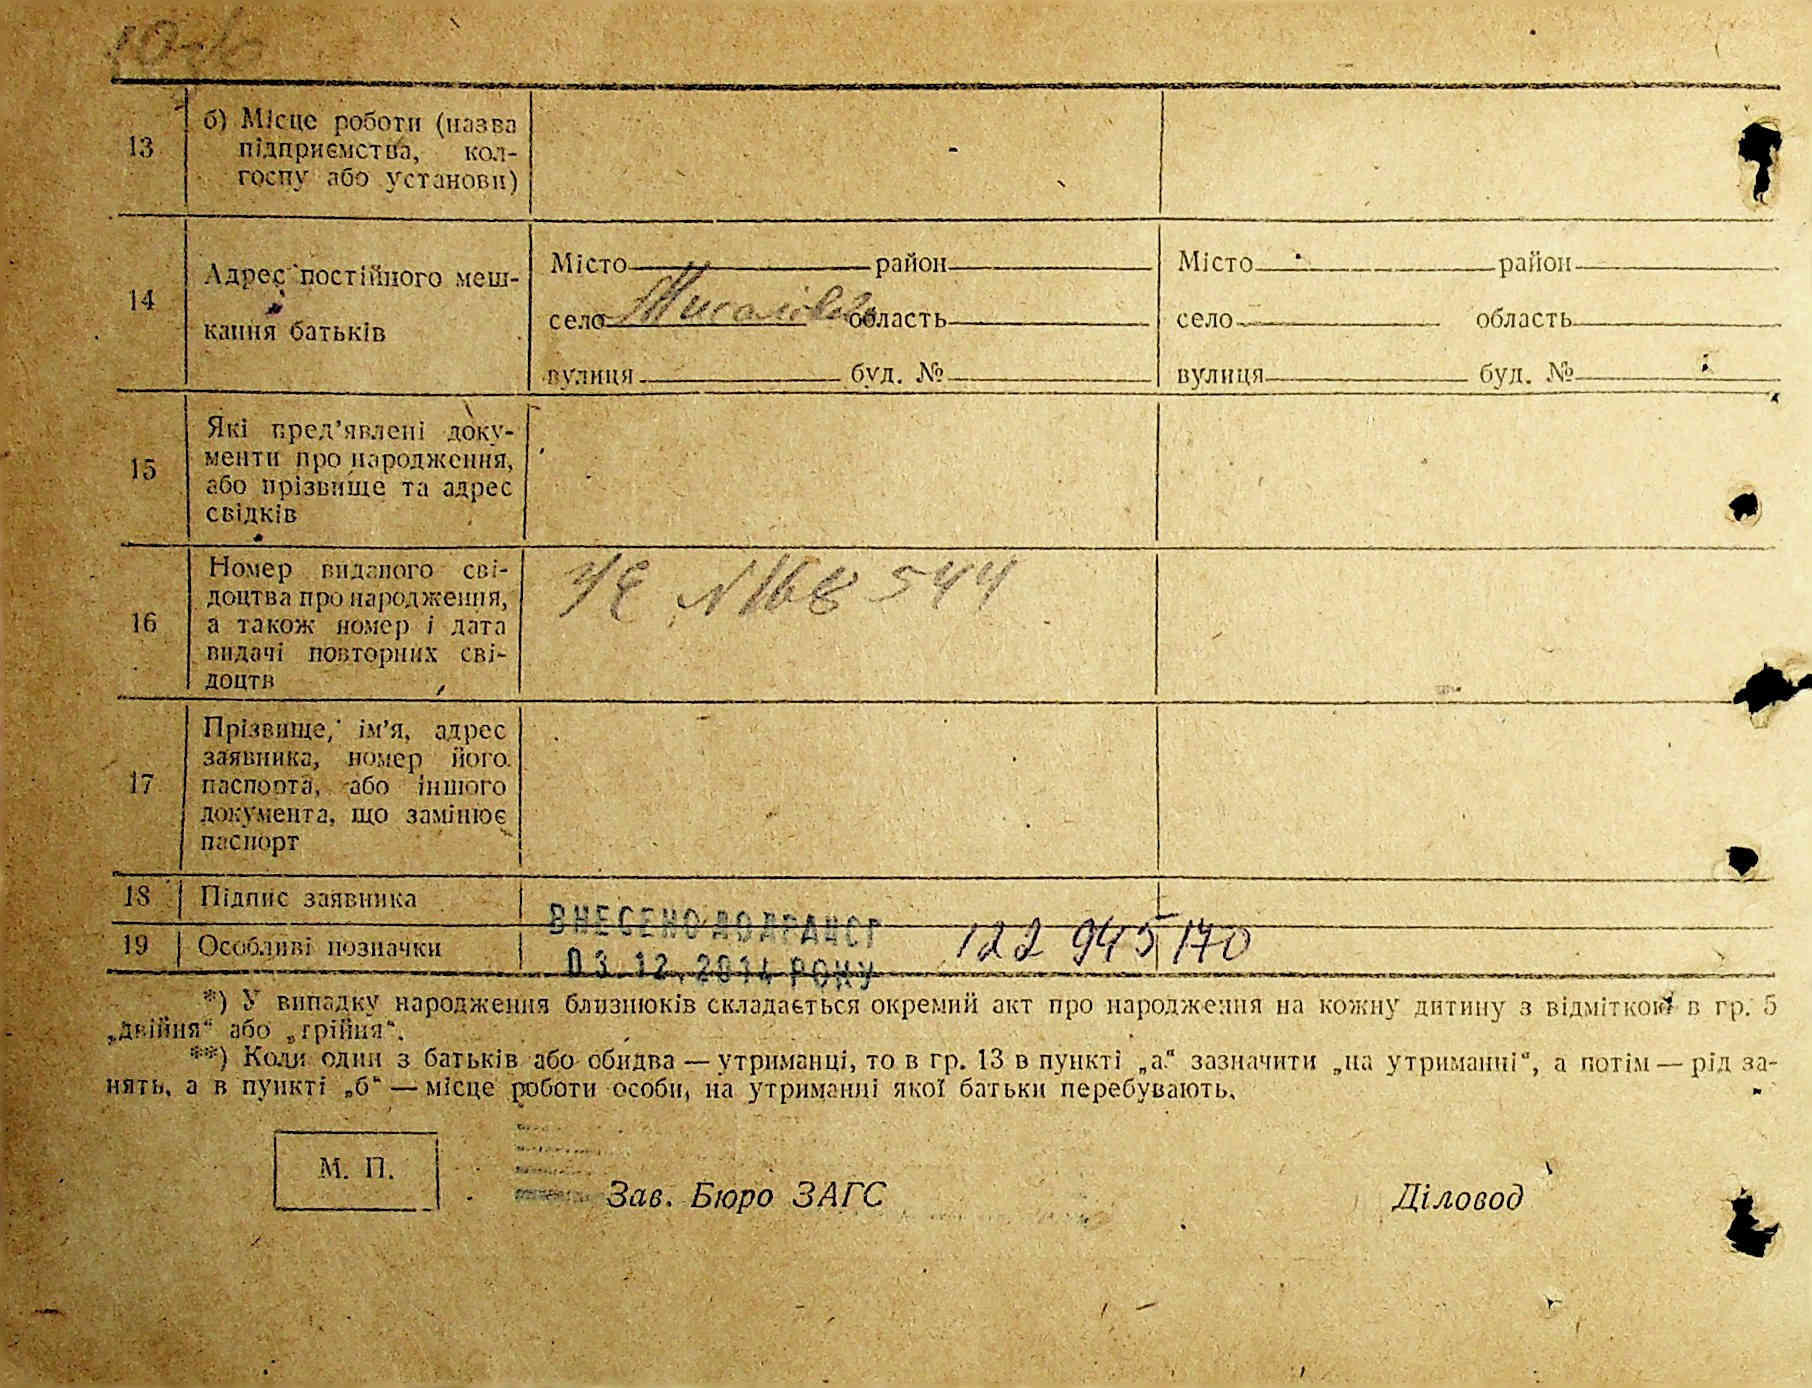 13
б) Місце роботи (назва
підприємства, кол-
госпу або установи)
14
Адрес постійного меш-
кання батьків
Місто район
село область
вулиця буд. №
Місто район
село область
вулиця буд. №
15
Які пред’явлені доку-
менти про народження,
або прізвище та адрес
свідків
16
Номер виданого сві-
доцтва про народження,
а також номер і дата
видачі повторних сві-
доцтв
№ 168 544
17
Прізвище, ім’я, адрес
заявника, номер його
паспорта, або іншого
документа, що замінює
паспорт
18 Підпис заявника
19 Особливі позначки
ВНЕСЕНО ДО ДРАЦСГ
03.12.2014 РОКУ
122 945 170
*) У випадку народження близнюків складається окремий акт про народження на кожну дитину з відміткою в гр. 5
„двійня“ або „трійня“.
**) Коли один з батьків або обидва — утриманці, то в гр. 13 в пункті „а“ зазначити „на утриманні“, а потім — рід за-
нять, а в пункті „б“ — місце роботи особи, на утриманні якої батьки перебувають.
М. П.
Зав. Бюро ЗАГС
Діловод